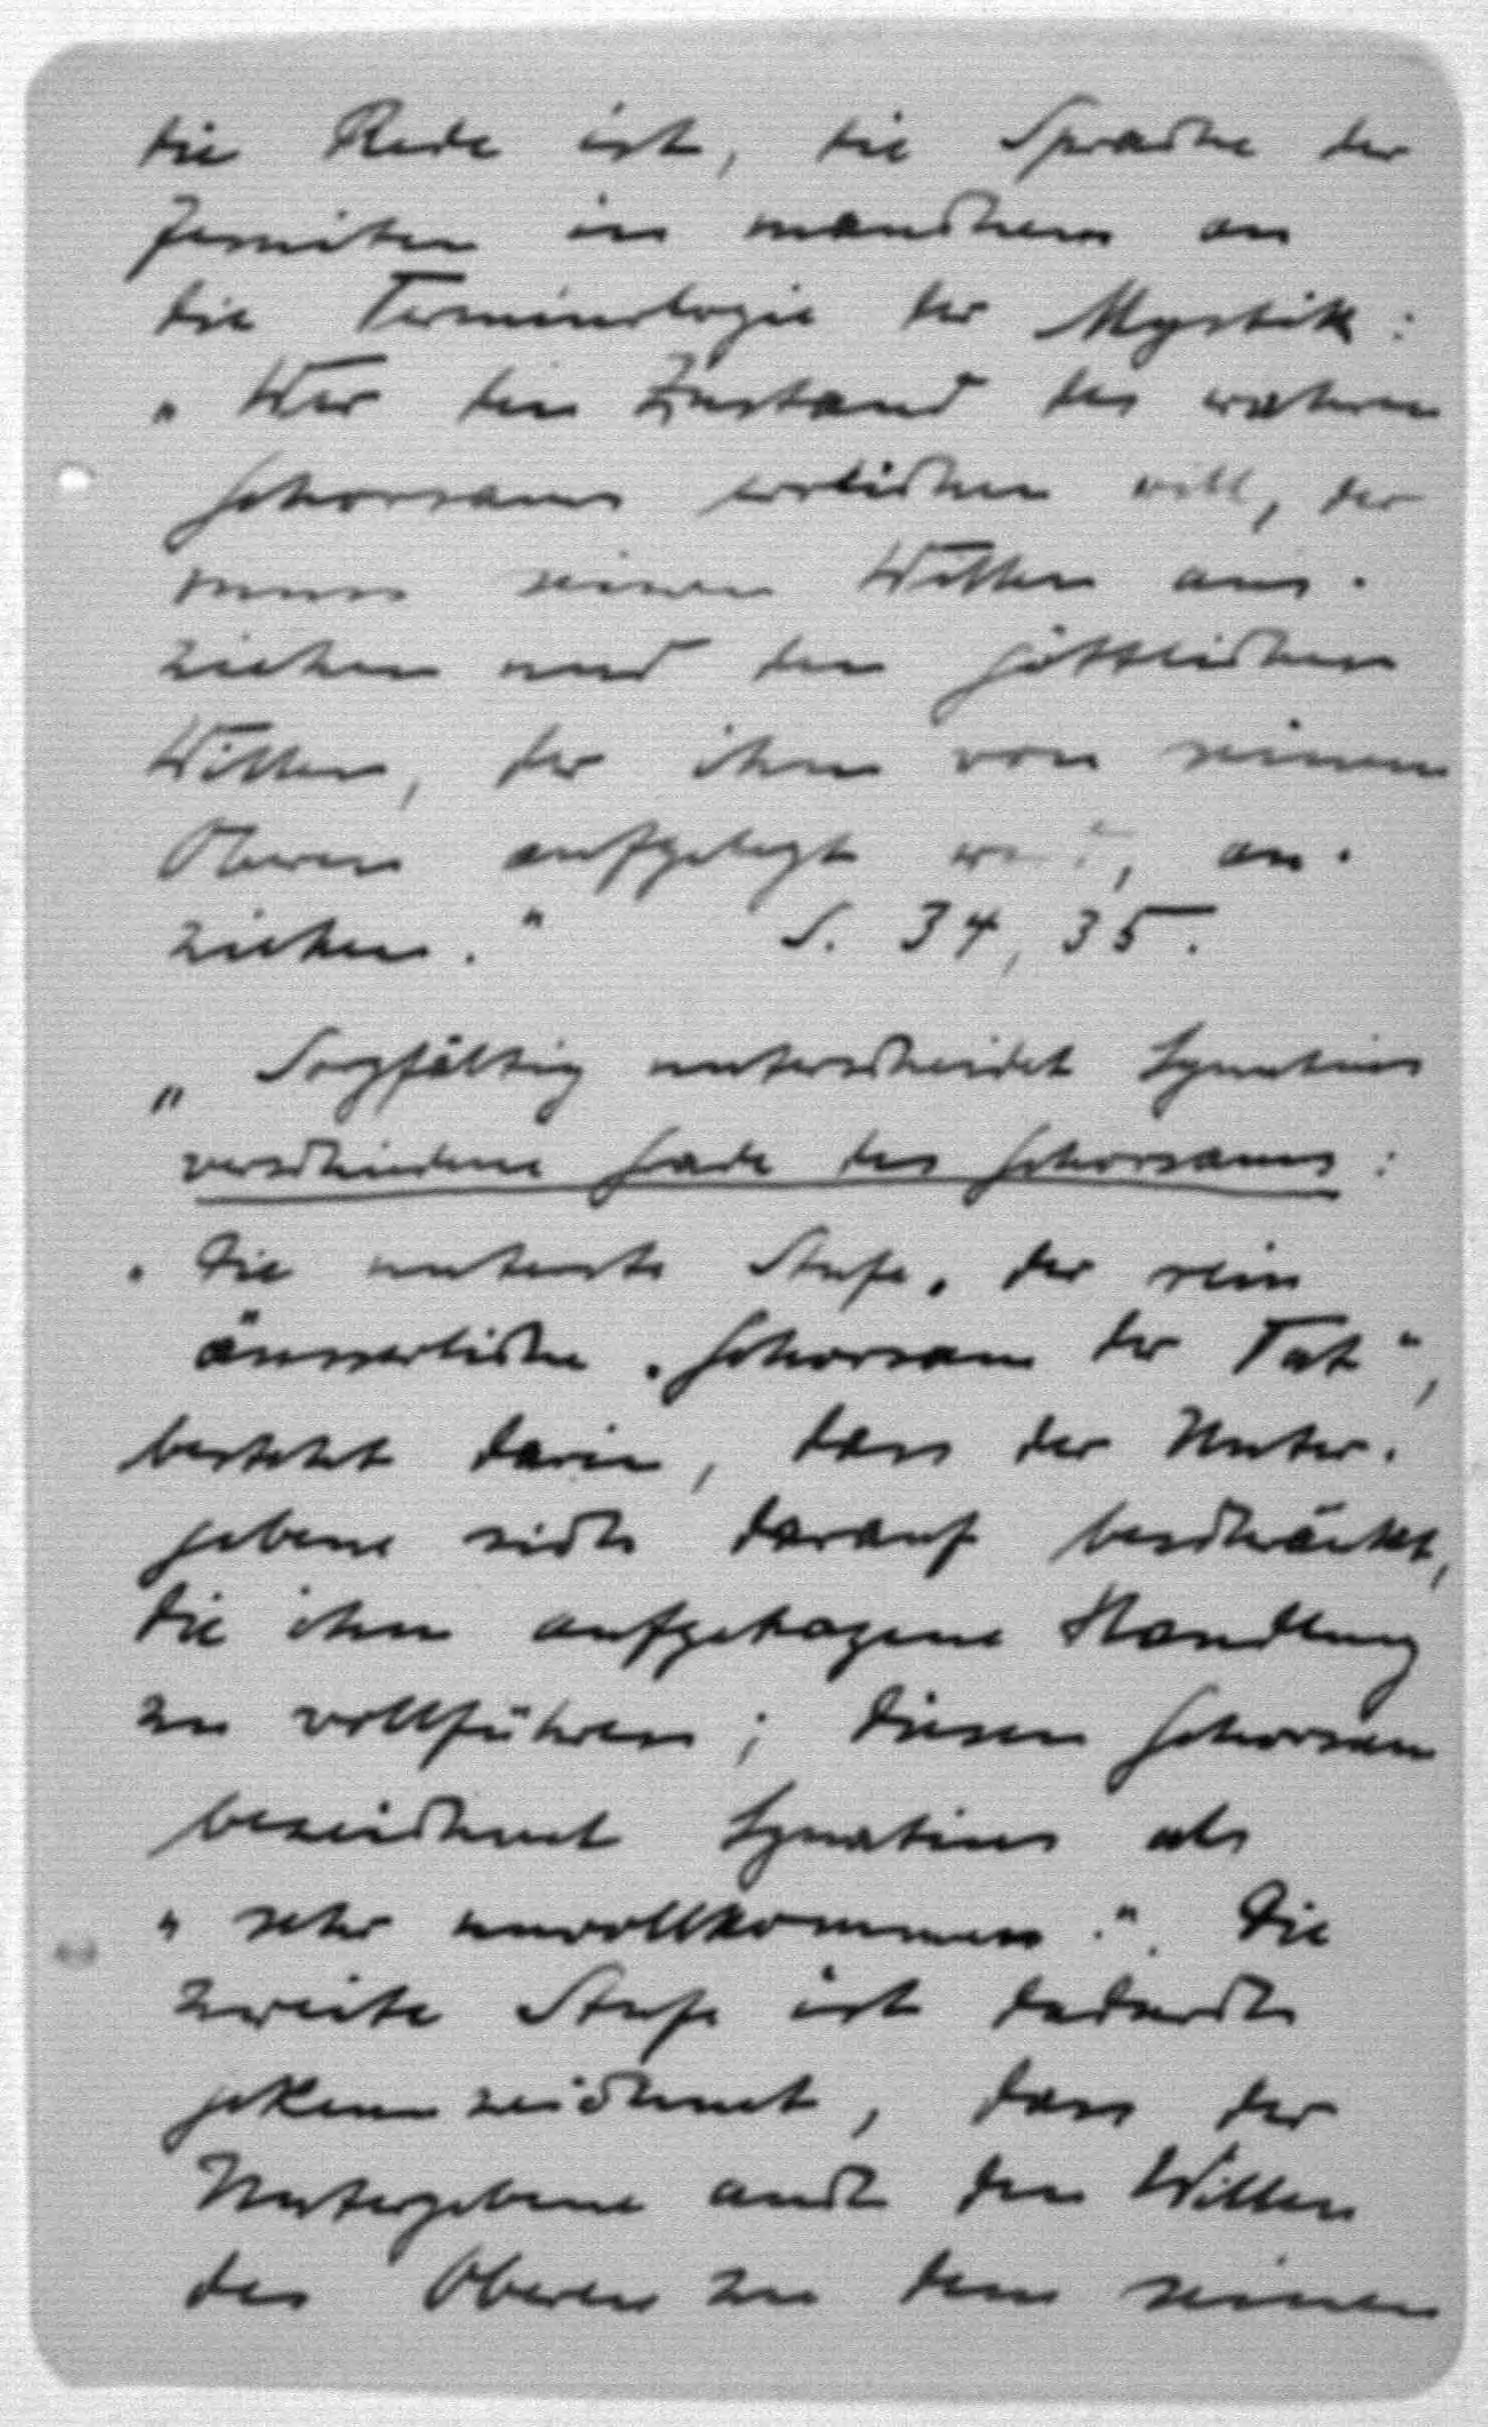 die Rede ist, die Sprache der
Jesuiten in manchem an
die Terminologie der Mystik:
„Wer den Zustand des wahren
Gehorsams erreichen will, der
muss seinen Willen aus-
ziehen und den göttlichen
Willen, der ihm von seinem
Oberen aufgelegt wird, an-
ziehen." S. 34, 35.
„Sorgfältig unterscheidet Ignatius
verschiedene Grade des Gehorsams:
„Die unterste Stufe, der rein
äusserliche „Gehorsam der Tat",
besteht darin, dass der Unter-
gebene sich darauf beschränkt,
die ihm aufgetragene Handlung
zu vollführen; diesen Gehorsam
bezeichnet Ignatius als
„sehr unvollkommen". Die
zweite Stufe ist dadurch
gekennzeichnet, dass der
Untergebene auch den Willen
des Oberen zu dem seinen